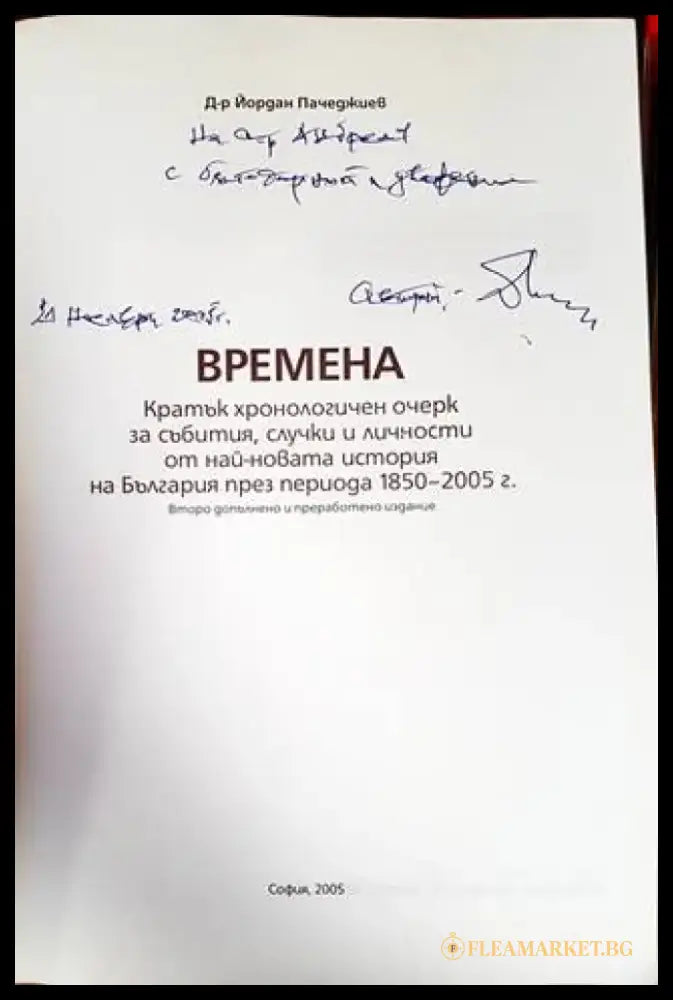 Д-р Йордан Пачеджиев
На д-р
с благодарност и уважение
21 Ноември 2005 г.
Автор:
ВРЕМЕНА
Кратък хронологичен очерк
за събития, случки и личности
от най-новата история
на България през периода 1850–2005 г.
Второ допълнено и преработено издание
София, 2005
FLEAMARKET.BG